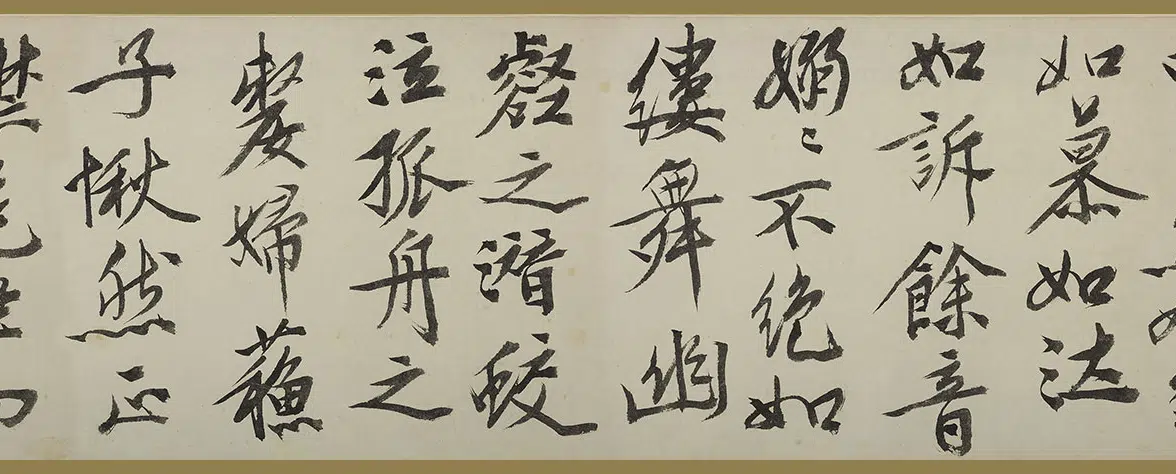 如慕如泣
如訴餘音
嫋〻不絕如
縷舞幽
壑之潛蛟
泣孤舟之
嫠婦蘇
子愀然正